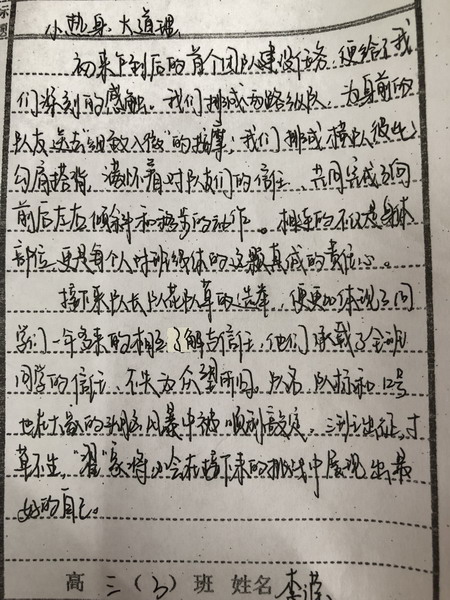 小热身 大道理
初来乍到后的首个团队建设任务,便给了我
们深刻的感触。我们排成两路纵队,为身前的
队友送去“细致入微”的按摩;我们排成横队彼此
勾肩搭背,满怀着对队友们的信任,共同完成了向
前后左右倾斜和移步的动作。相连的不仅是身体
部位,更是每个人对班级体的这颗真诚的责任心。
接下来队长队花队草的选举,便更加体现了同
学们一年多来的相互了解与信任,他们承载了全班
同学的信任,不失为众望所归。队名、队标和口号
也在大家的头脑风暴中被顺利敲定。三班出征,寸
草不生,“”家将必会在接下来的挑战中展现出最
好的自己。
高 三(3)班 姓名 李
标题